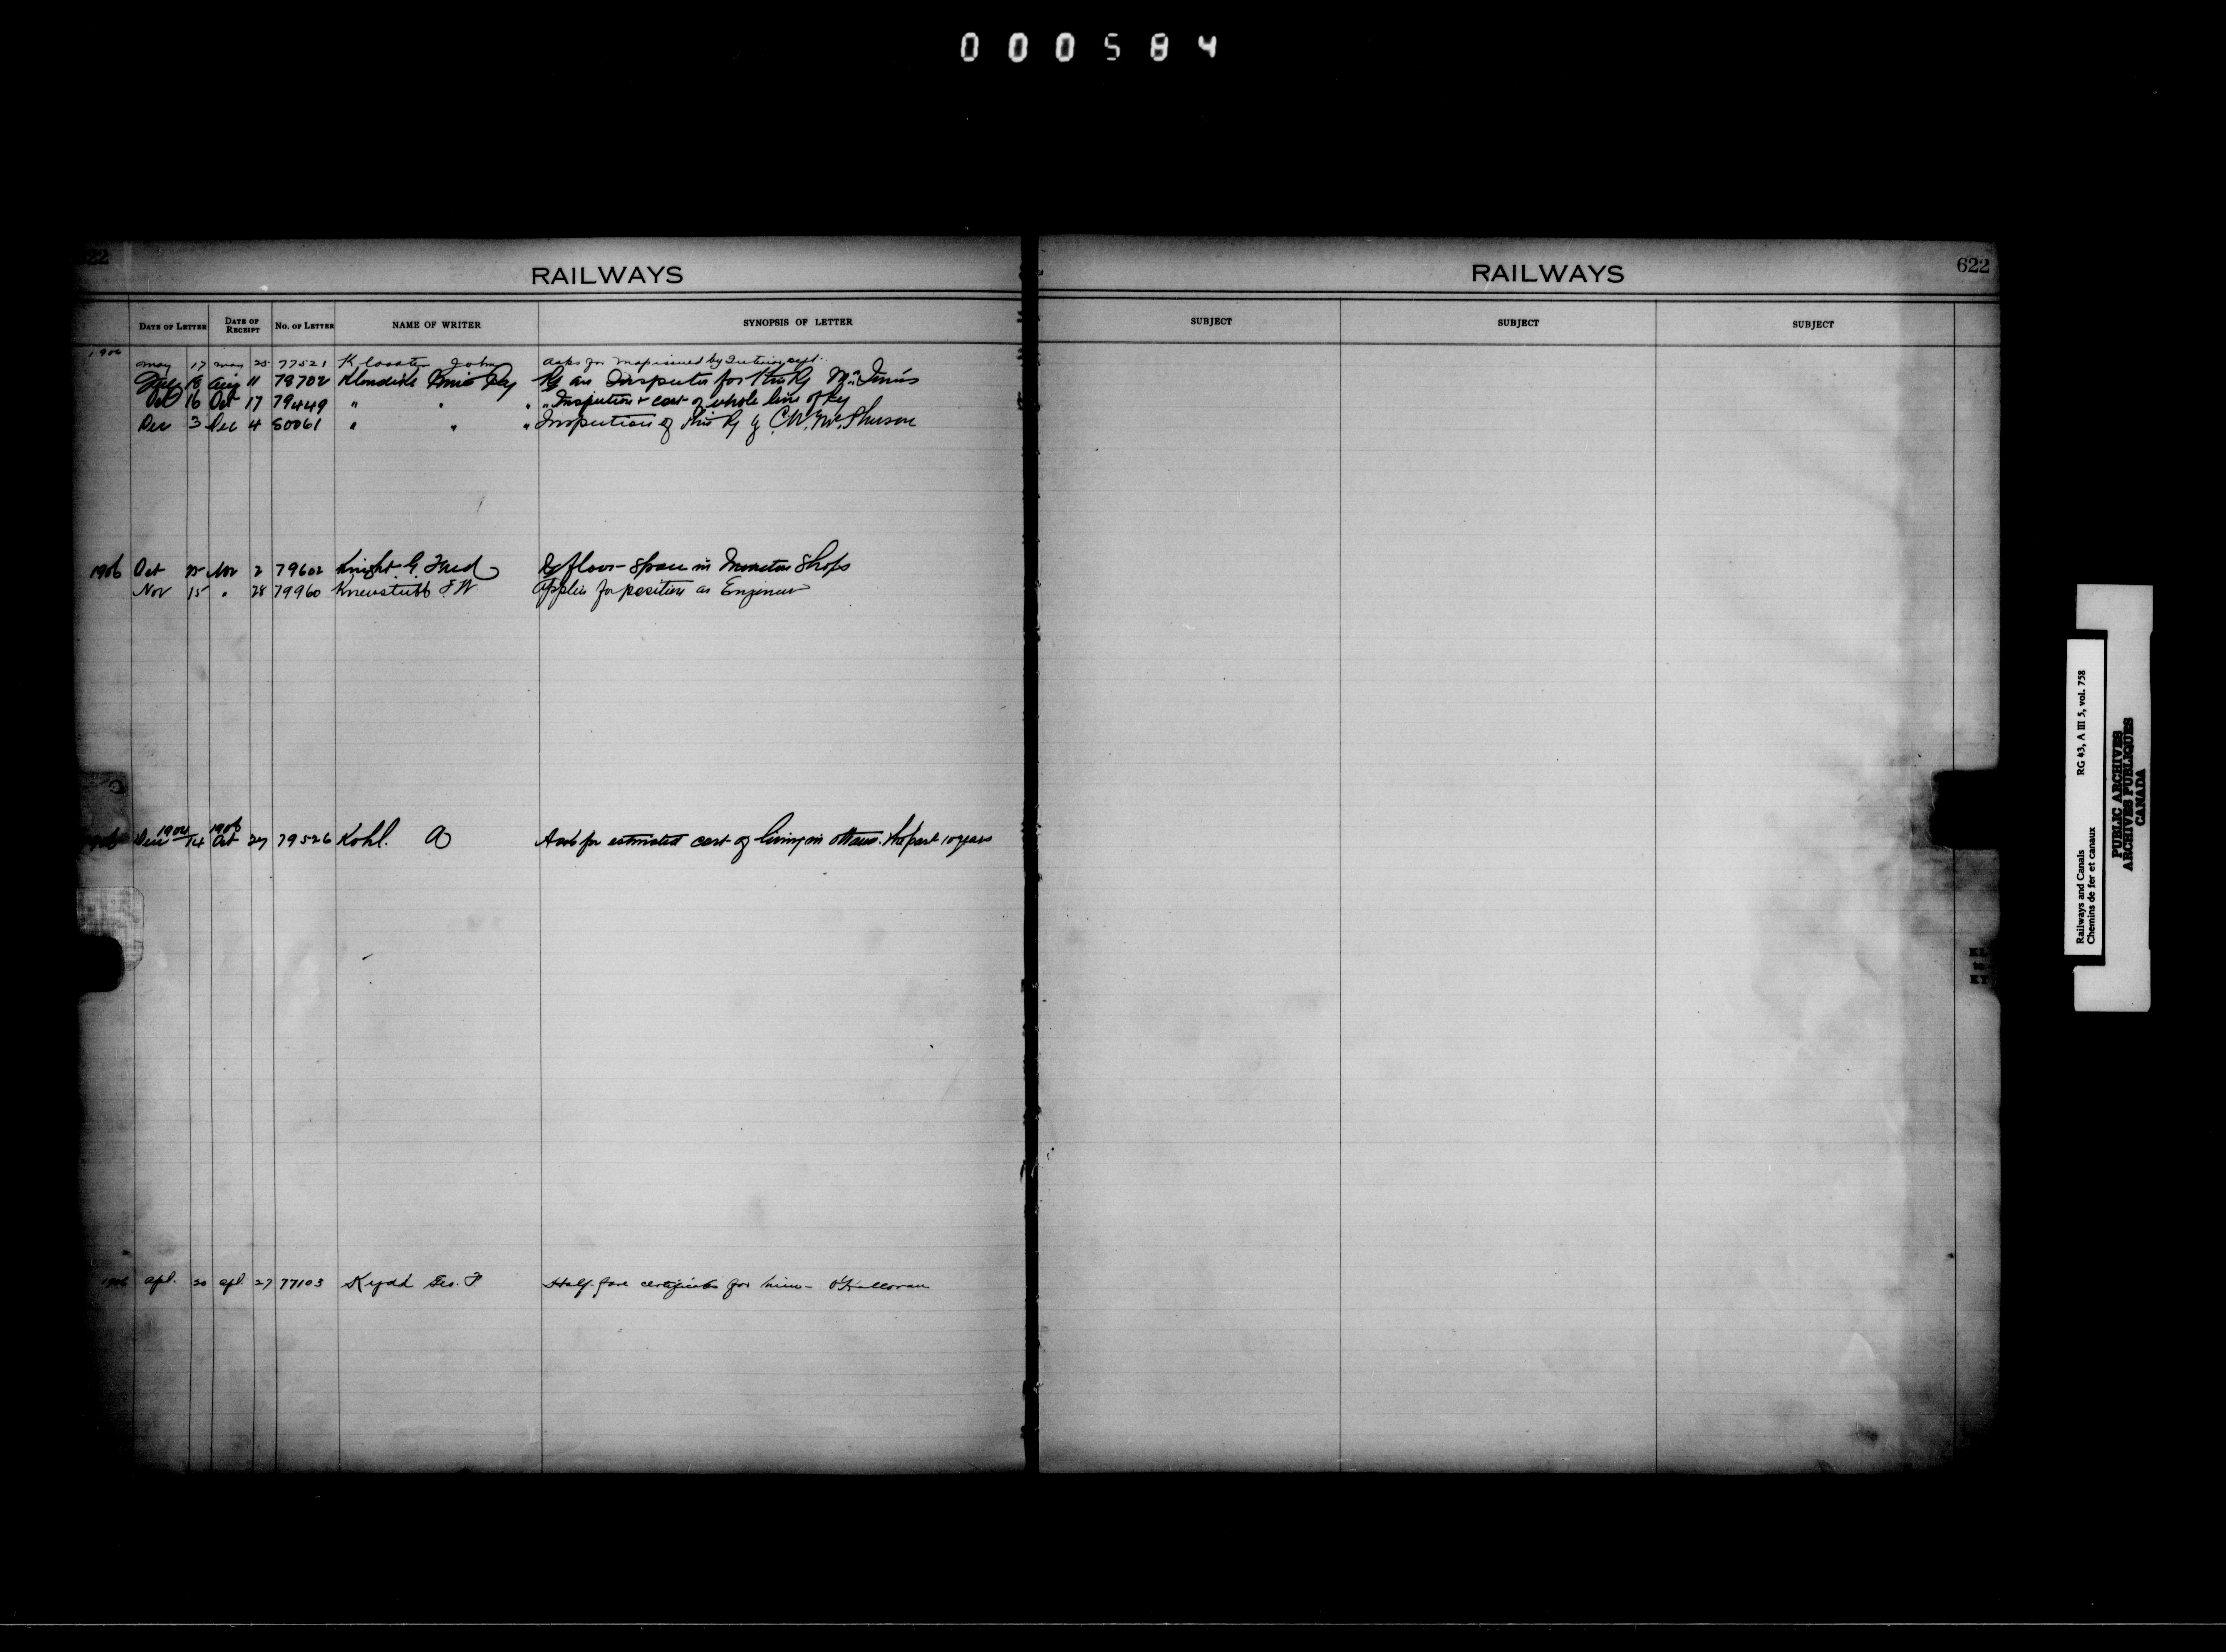 000584
622
RAILWAYS
DATE OF LETTER DATE OF RECEIPT NO. OF LETTER NAME OF WRITER SYNOPSIS OF LETTER
1906
May 17 May 25 77521 Klooster John Asks for map issued by Interior Dept.
18 Aug 11 78702 Klondike Mines Ry Re an Inspector for this Ry
Oct 16 Oct 17 79449 " " " " Inspection & cost of whole line of Ry
Dec 3 Dec 4 80061 " " " Inspection of this Ry by
1906 Oct 25 Nov 2 79602 Knight G. Fred Re floor space in Moncton Shops
Nov 15 " 28 79960 Knewstubb F W Applies for position as Engineer
1906 1904 14 1906 Oct 27 79526 Kohl. A Asks for estimated cost of living in Ottawa the past 10 years
1906 Apl. 20 Apl 27 77103 Kydd Geo. F Half-fare certificates for him - O'Halloran
RAILWAYS
622
SUBJECT SUBJECT SUBJECT
Railways and Canals RG 43, A III 5, vol. 758
Chemins de fer et canaux
PUBLIC ARCHIVES
ARCHIVES PUBLIQUES
CANADA